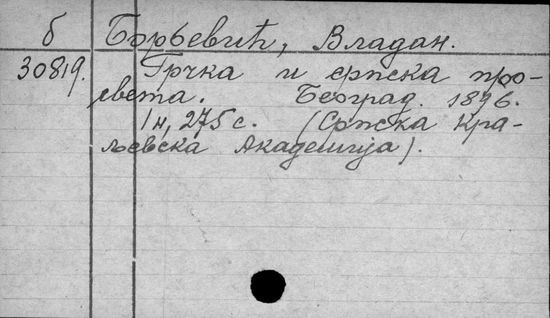 б Ђорђевић, Владан.
30819. Грчка и српска про-
света. Београд. 1896.
1н, 275 с. (Српска Кра-
љевска Академија).